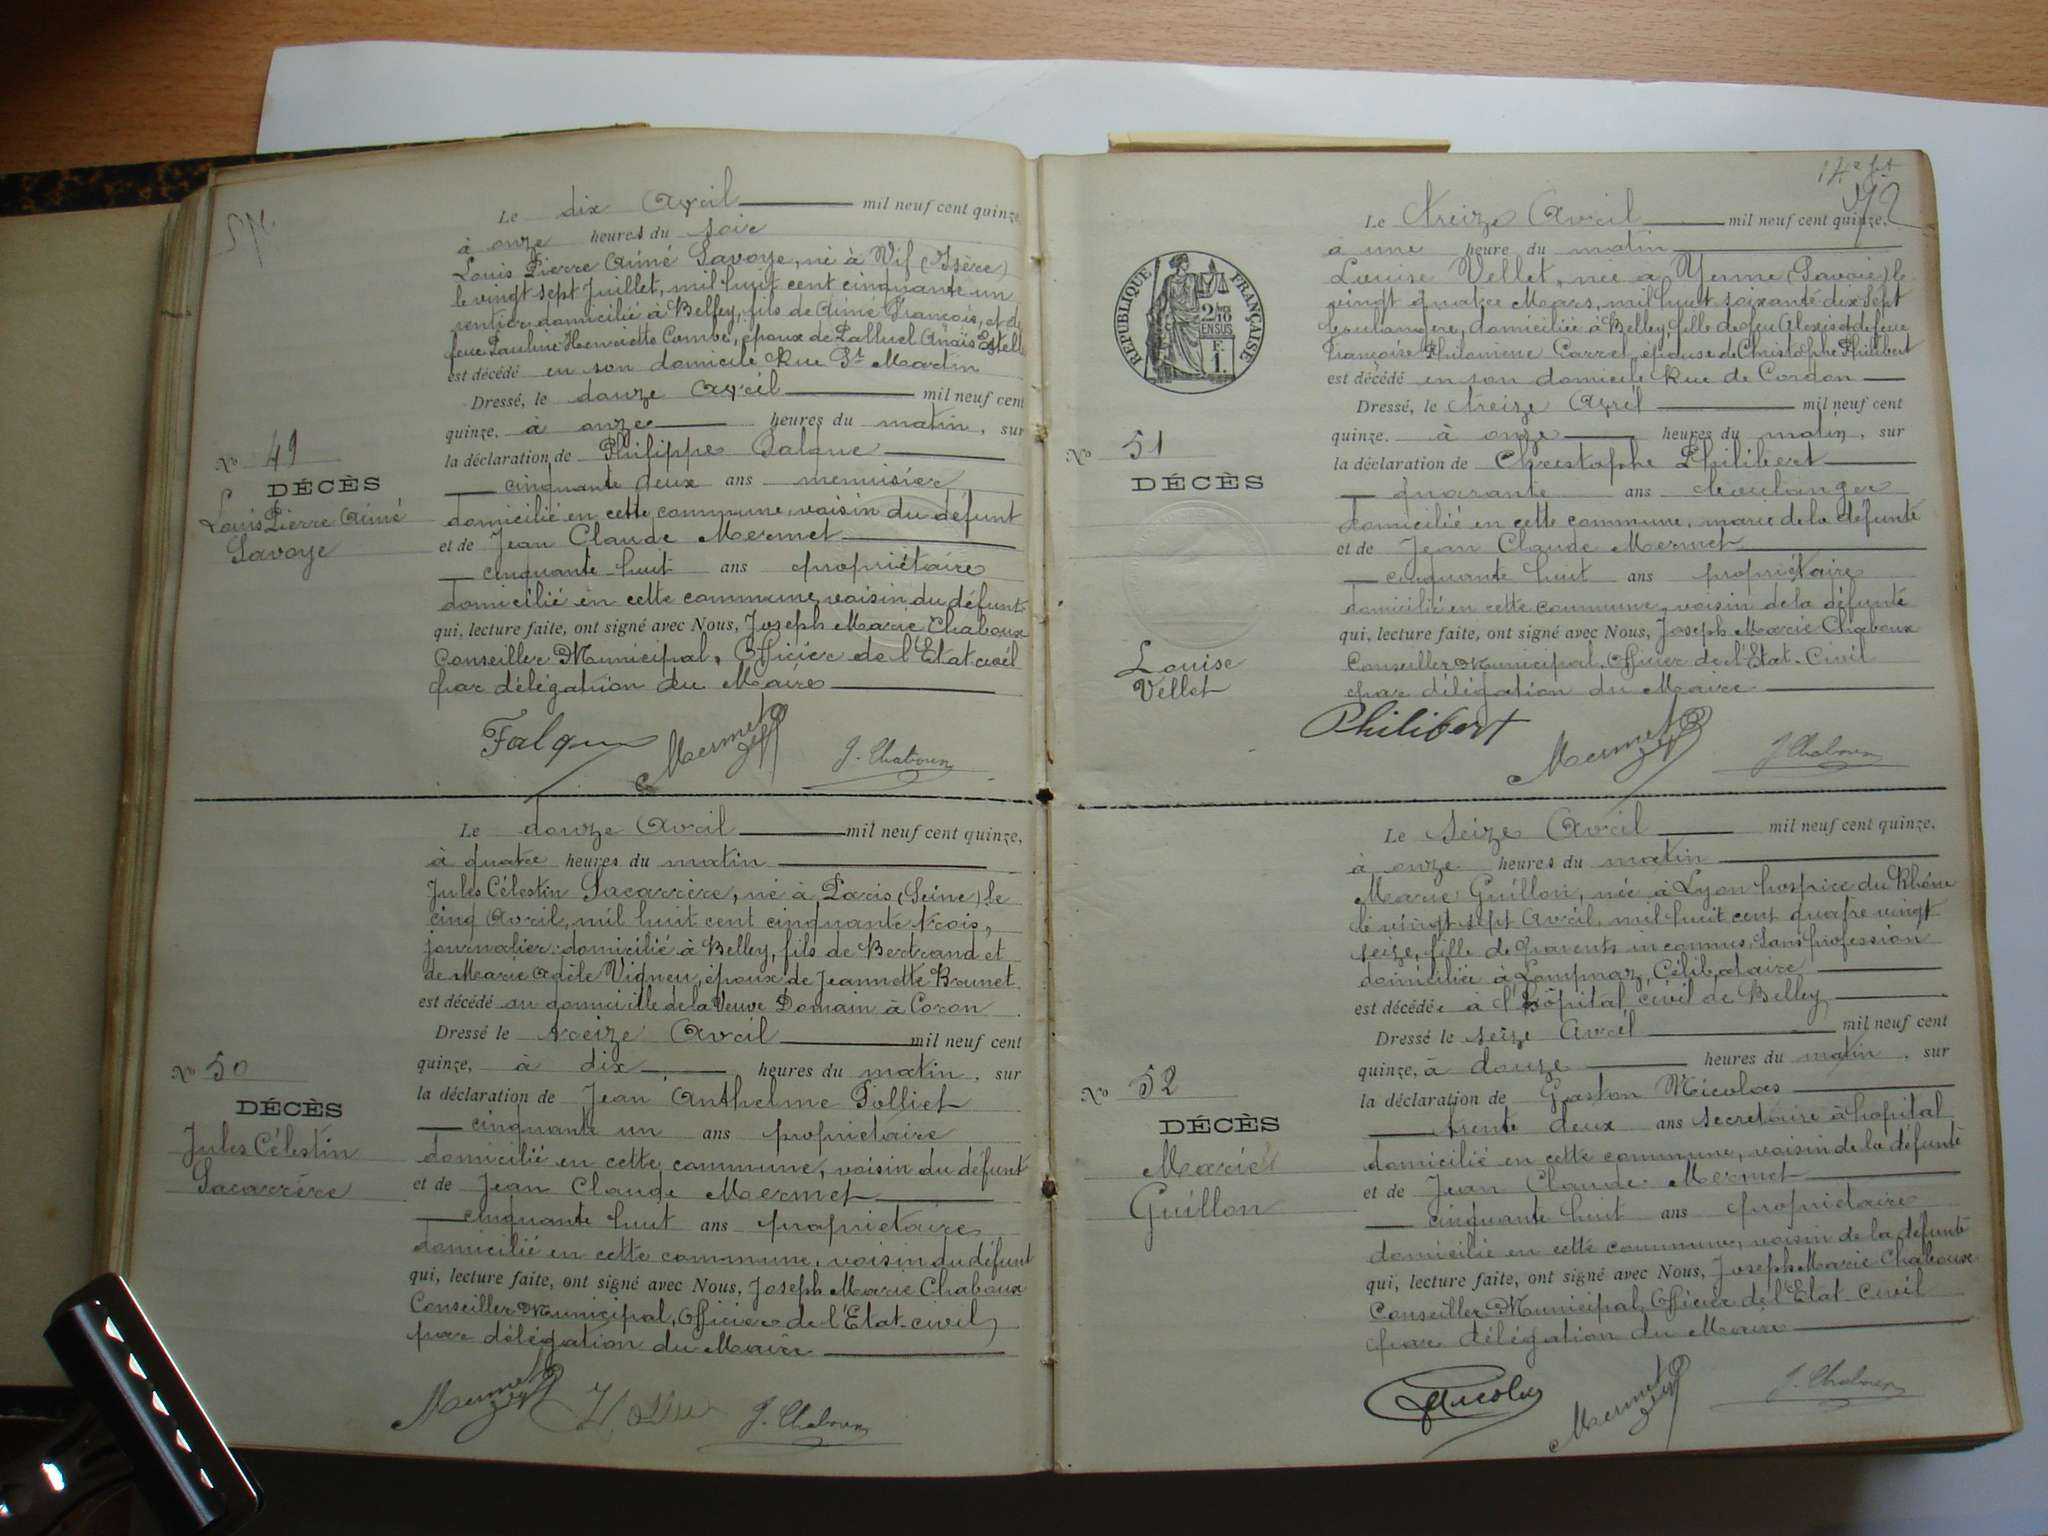 Le dix Avril mil neuf cent quinze,
à onze heures du soir
Louis Pierre Aimé Savoye, né à Vif (Isère)
le vingt sept Juillet, mil huit cent cinquante un
rentier domicilié à Belley, fils de Aimé François, et de
feue Pauline Henriette Combe, époux de Lalluel Anaïs Estelle
est décédé en son domicile Rue St Martin
Dressé, le douze Avril mil neuf cent
quinze, à onze heures du matin, sur
la déclaration de Philippe Falque
cinquante deux ans menuisier
domicilié en cette commune, voisin du défunt
et de Jean Claude Mermet
cinquante huit ans propriétaire
domicilié en cette commune, voisin du défunt
qui, lecture faite, ont signé avec Nous, Joseph Marie Chaboux
Conseiller Municipal, Officier de l'Etat civil
par délégation du Maire
No 49
DÉCÈS
Louis Pierre Aimé
Savoye
Falque Mermet J. Chaboux
Le douze Avril mil neuf cent quinze,
à quatre heures du matin
Jules Célestin Sacarrère, né à Paris (Seine) le
cinq Avril, mil huit cent cinquante trois,
journalier domicilié à Belley, fils de Bertrand et
de Marie Adèle Vigneu, époux de Jeannette Brunet
est décédé au domicille de la Veuve Domain à Coron
Dressé le treize Avril mil neuf cent
quinze, à dix heures du matin, sur
la déclaration de Jean Anthelme Polliet
cinquante un ans propriétaire
domicilié en cette commune, voisin du défunt
et de Jean Claude Mermet
cinquante huit ans propriétaire
domicilié en cette commune, voisin du défunt
qui, lecture faite, ont signé avec Nous, Joseph Marie Chaboux
Conseiller Municipal, Officier de l'Etat-civil,
par délégation du Maire
No 50
DÉCÈS
Jules Célestin
Sacarrère
Mermet J. Chaboux
RÉPUBLIQUE FRANÇAISE
2/10
EN SUS
F.
1.
Le treize Avril mil neuf cent quinze,
a une heure du matin
Louise Vellet, née à Yenne (Savoie) le
vingt quatre Mars, mil huit soixante dix sept
boulangère, domiciliée à Belley, fille de feu Alexis et de feue
Françoise Philomène Carrel, épouse de Christophe Philibert
est décédé en son domicile Rue de Cordon
Dressé, le treize Avril mil neuf cent
quinze, à onze heures du matin, sur
la déclaration de Christophe Philibert
quarante ans boulanger
domicilié en cette commune, marie de la défunte
et de Jean Claude Mermet
cinquante huit ans propriétaire
domicilié en cette commune, voisin de la défunte
qui, lecture faite, ont signé avec Nous, Joseph Marie Chaboux
Conseiller Municipal, Officier de l'Etat-Civil
par délégation du Maire
No 51
DÉCÈS
Louise
Vellet
Philibert Mermet J. Chaboux
Le Seize Avril mil neuf cent quinze,
à onze heures du matin
Marie Guillon, née à Lyon hospice du Rhône
le vingt sept Avril, mil huit cent quatre vingt
seize, fille de parents inconnus, sans profession
domiciliée à Lompnaz, Célibataire
est décédée à l'hôpital civil de Belley
Dressé le seize Avril mil neuf cent
quinze, à douze heures du matin, sur
la déclaration de Gaston Nicolas
trente deux ans secretaire à hopital
domicilié en cette commune, voisin de la défunte
et de Jean Claude Mermet
cinquante huit ans propriétaire
domicilié en cette commune, voisin de la défunte
qui, lecture faite, ont signé avec Nous, Joseph Marie Chaboux
Conseiller Municipal, Officier de l'Etat-civil
par délégation du Maire
No 52
DÉCÈS
Marie
Guillon
GNicolas Mermet J. Chaboux